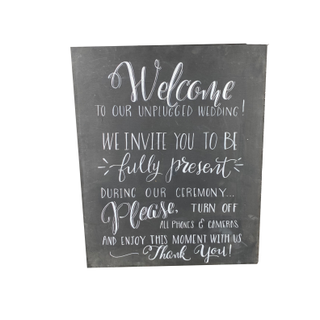 Welcome
TO OUR UNPLUGGED WEDDING!
WE INVITE YOU TO BE
fully present
DURING OUR CERIMONY...
Please, TURN OFF
ALL PHONES & CAMERAS
AND ENJOY THIS MOMENT WITH US
Thank You!